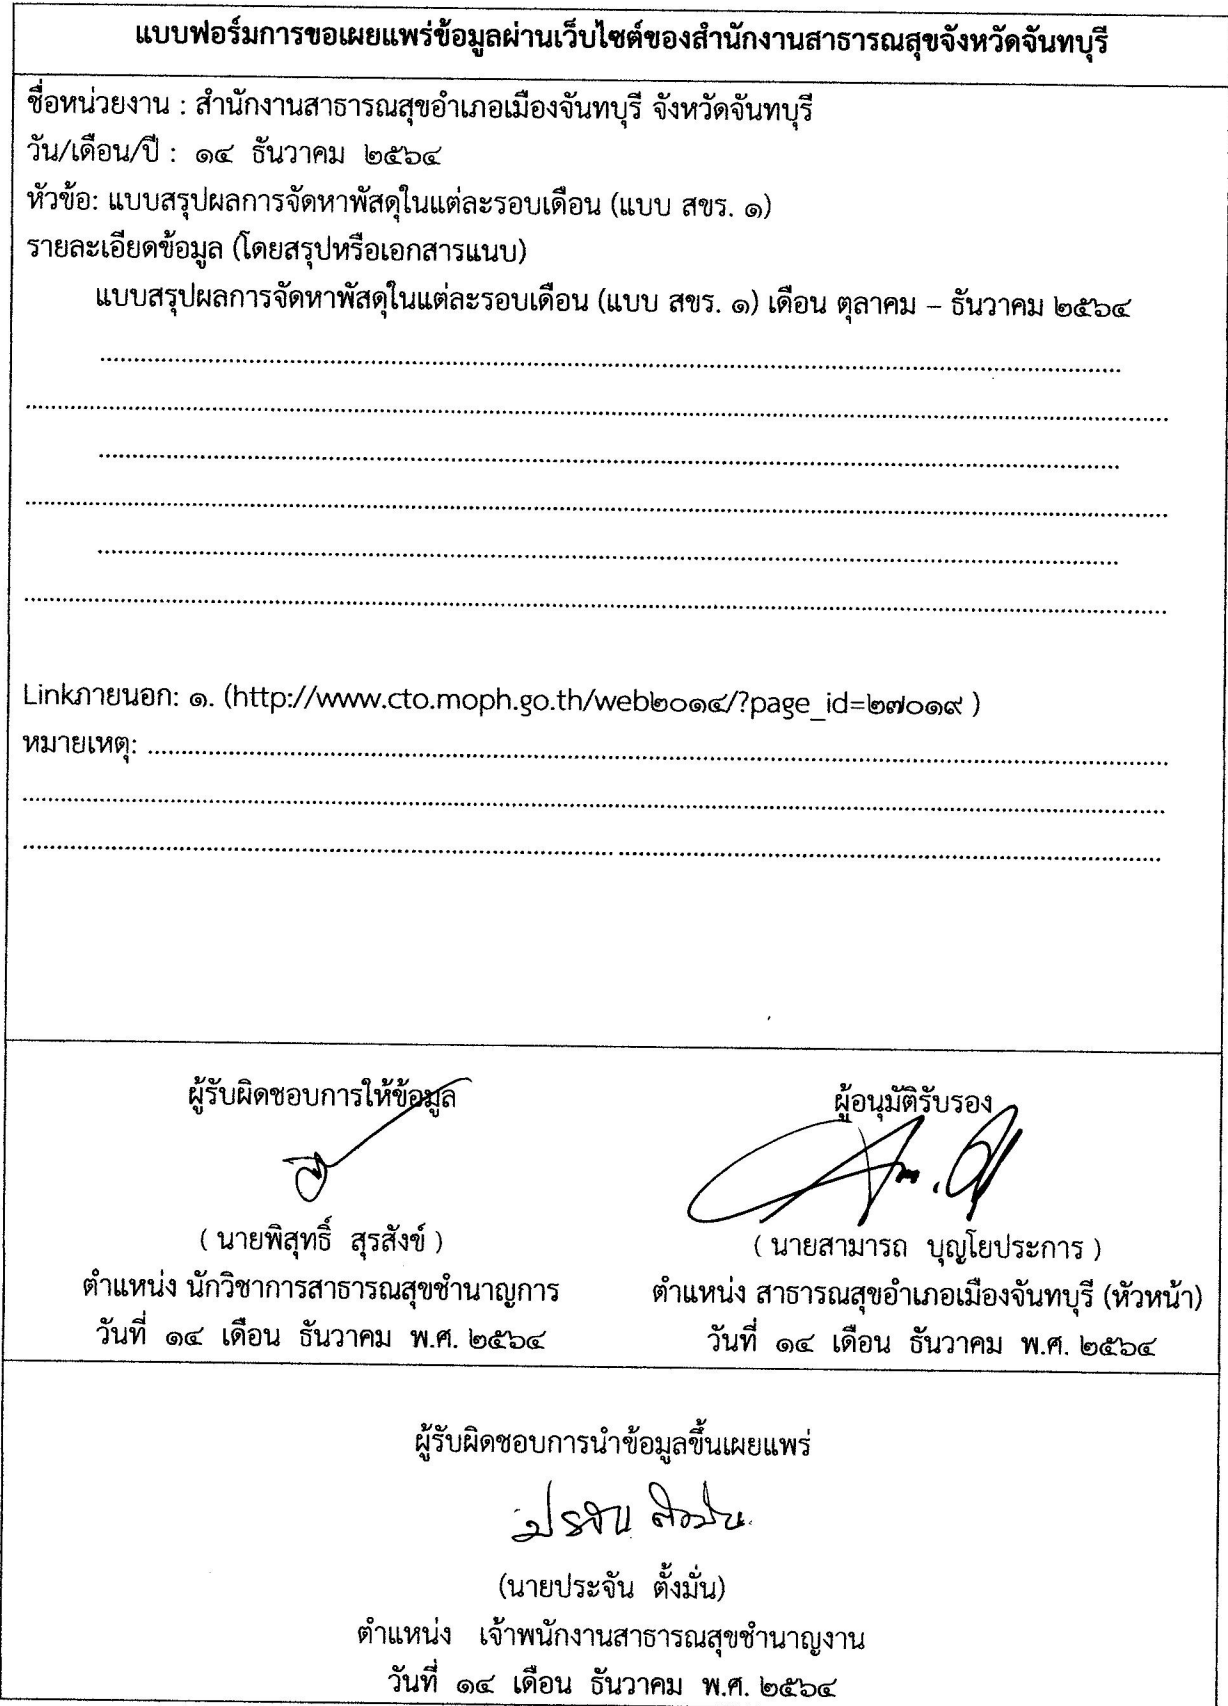 แบบฟอร์มการขอเผยแพร่ข้อมูลผ่านเว็บไซต์ของสำนักงานสาธารณสุขจังหวัดจันทบุรี
ชื่อหน่วยงาน : สำนักงานสาธารณสุขอำเภอเมืองจันทบุรี จังหวัดจันทบุรี
วัน/เดือน/ปี : ๑๔ ธันวาคม ๒๕๖๔
หัวข้อ: แบบสรุปผลการจัดหาพัสดุในแต่ละรอบเดือน (แบบ สขร. ๑)
รายละเอียดข้อมูล (โดยสรุปหรือเอกสารแนบ)
แบบสรุปผลการจัดหาพัสดุในแต่ละรอบเดือน (แบบ สขร. ๑) เดือน ตุลาคม – ธันวาคม ๒๕๖๔
Linkภายนอก: ๑. (http://www.cto.moph.go.th/web๒๐๑๔/?page_id=๒๗๐๑๙ )
หมายเหตุ:
ผู้รับผิดชอบการให้ข้อมูล
( นายพิสุทธิ์ สุรสังข์ )
ตำแหน่ง นักวิชาการสาธารณสุขชำนาญการ
วันที่ ๑๔ เดือน ธันวาคม พ.ศ. ๒๕๖๔
ผู้อนุมัติรับรอง
( นายสามารถ บุญโยประการ )
ตำแหน่ง สาธารณสุขอำเภอเมืองจันทบุรี (หัวหน้า)
วันที่ ๑๔ เดือน ธันวาคม พ.ศ. ๒๕๖๔
ผู้รับผิดชอบการนำข้อมูลขึ้นเผยแพร่
ประจัน ตั้งมั่น
(นายประจัน ตั้งมั่น)
ตำแหน่ง เจ้าพนักงานสาธารณสุขชำนาญงาน
วันที่ ๑๔ เดือน ธันวาคม พ.ศ. ๒๕๖๔